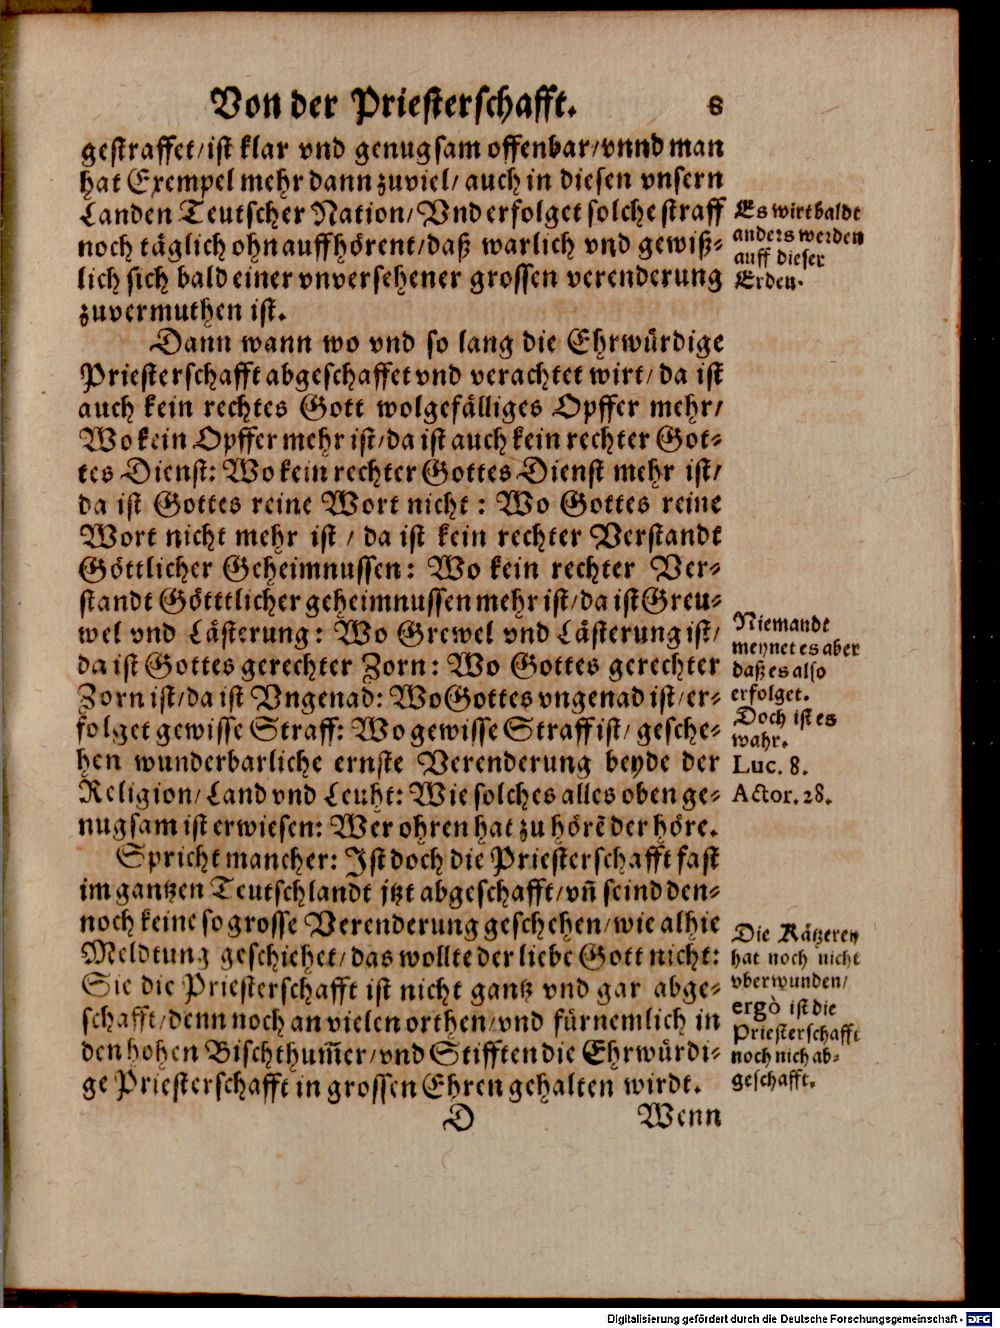 Von der Priesterschafft. 8
gestraffet/ist klar vnd genugsam offenbar/vnnd man
hat Exempel mehr dann zuviel/ auch in diesen vnsern
Landen Teutscher Nation/Vnd erfolget solche straff
noch täglich ohnauffhörent/daß warlich vnd gewiß-
lich sich bald einer vnversehener grossen verenderung
zuvermuthen ist.
Es wirt baldt
anders werden
auff dieser
Erden.
Dann wann wo vnd so lang die Ehrwürdige
Priesterschafft abgeschaffet vnd verachtet wirt/ da ist
auch kein rechtes Gott wolgefälliges Opffer mehr/
Wo kein Opffer mehr ist/da ist auch kein rechter Got-
tes Dienst: Wo kein rechter Gottes Dienst mehr ist/
da ist Gottes reine Wort nicht : Wo Gottes reine
Wort nicht mehr ist / da ist kein rechter Verstandt
Göttlicher Geheimnussen: Wo kein rechter Ver-
standt Götttlicher geheimnussen mehr ist/da ist Greu-
wel vnd Lästerung: Wo Grewel vnd Lästerung ist/
da ist Gottes gerechter Zorn: Wo Gottes gerechter
Zorn ist/da ist Vngenad: Wo Gottes vngenad ist/er-
folget gewisse Straff: Wo gewisse Straff ist/ gesche-
hen wunderbarliche ernste Verenderung beyde der
Religion/Land vnd Leuht: Wie solches alles oben ge-
nugsam ist erwiesen: Wer ohren hat zu hörẽ der höre.
Niemandt
meynet es aber
daß es also
erfolget.
Doch ist es
wahr.
Luc. 8.
Actor. 28.
Spricht mancher: Ist doch die Priesterschafft fast
im gantzen Teutschlandt jtzt abgeschafft/vñ seind den-
noch keine so grosse Verenderung geschehen/wie alhie
Meldtung geschiehet/das wollte der liebe Gott nicht:
Sie die Priesterschafft ist nicht gantz vnd gar abge-
schafft/denn noch an vielen orthen/vnd fürnemlich in
den hohen Bischthum̃er/vnd Stifften die Ehrwürdi-
ge Priesterschafft in grossen Ehren gehalten wirdt.
Die Kätzerey
hat noch nicht
vberwunden/
ergò ist die
Priesterschafft
noch nich ab-
geschafft.
D Wenn
Digitalisierung gefördert durch die Deutsche Forschungsgemeinschaft - DFG